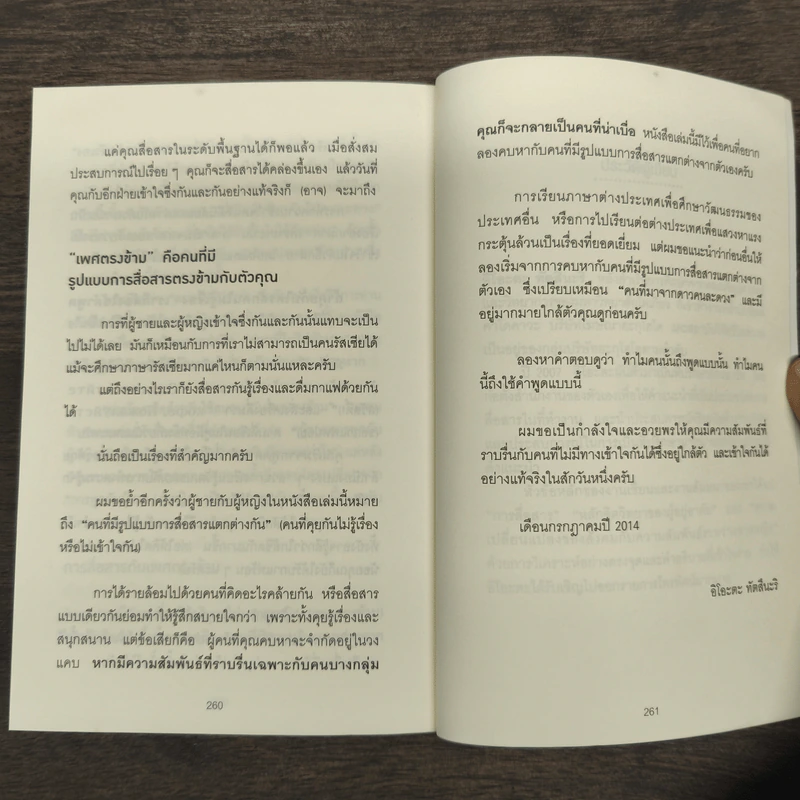 แค่คุณสื่อสารในระดับพื้นฐานได้ก็พอแล้ว เมื่อสั่งสม
ประสบการณ์ไปเรื่อย ๆ คุณก็จะสื่อสารได้คล่องขึ้นเอง แล้ววันที่
คุณกับอีกฝ่ายเข้าใจซึ่งกันและกันอย่างแท้จริงก็ (อาจ) จะมาถึง
"เพศตรงข้าม" คือคนที่มี
รูปแบบการสื่อสารตรงข้ามกับตัวคุณ
การที่ผู้ชายและผู้หญิงเข้าใจซึ่งกันและกันนั้นแทบจะเป็น
ไปไม่ได้เลย มันก็เหมือนกับการที่เราไม่สามารถเป็นคนรัสเซียได้
แม้จะศึกษาภาษารัสเซียมากแค่ไหนก็ตามนั่นแหละครับ
แต่ถึงอย่างไรเราก็ยังสื่อสารกันรู้เรื่องและดื่มกาแฟด้วยกัน
ได้
นั่นถือเป็นเรื่องที่สำคัญมากครับ
ผมขอย้ำอีกครั้งว่าผู้ชายกับผู้หญิงในหนังสือเล่มนี้หมาย
ถึง "คนที่มีรูปแบบการสื่อสารแตกต่างกัน" (คนที่คุยกันไม่รู้เรื่อง
หรือไม่เข้าใจกัน)
การได้รายล้อมไปด้วยคนที่คิดอะไรคล้ายกัน หรือสื่อสาร
แบบเดียวกันย่อมทำให้รู้สึกสบายใจกว่า เพราะทั้งคุยรู้เรื่องและ
สนุกสนาน แต่ข้อเสียก็คือ ผู้คนที่คุณคบหาจะจำกัดอยู่ในวง
แคบ หากมีความสัมพันธ์ที่ราบรื่นเฉพาะกับคนบางกลุ่ม
260
คุณก็จะกลายเป็นคนที่น่าเบื่อ หนังสือเล่มนี้มีไว้เพื่อคนที่อยาก
ลองคบหากับคนที่มีรูปแบบการสื่อสารแตกต่างจากตัวเองครับ
การเรียนภาษาต่างประเทศเพื่อศึกษาวัฒนธรรมของ
ประเทศอื่น หรือการไปเรียนต่อต่างประเทศเพื่อแสวงหาแรง
กระตุ้นล้วนเป็นเรื่องที่ยอดเยี่ยม แต่ผมขอแนะนำว่าก่อนอื่นให้
ลองเริ่มจากการคบหากับคนที่มีรูปแบบการสื่อสารแตกต่างจาก
ตัวเอง ซึ่งเปรียบเหมือน "คนที่มาจากดาวคนละดวง" และมี
อยู่มากมายใกล้ตัวคุณดูก่อนครับ
ลองหาคำตอบดูว่า ทำไมคนนั้นถึงพูดแบบนั้น ทำไมคน
นี้ถึงใช้คำพูดแบบนี้
ผมขอเป็นกำลังใจและอวยพรให้คุณมีความสัมพันธ์ที่
ราบรื่นกับคนที่ไม่มีทางเข้าใจกันได้ซึ่งอยู่ใกล้ตัว และเข้าใจกันได้
อย่างแท้จริงในสักวันหนึ่งครับ
เดือนกรกฎาคมปี 2014
อิโอะตะ ทัตสึนะริ
261